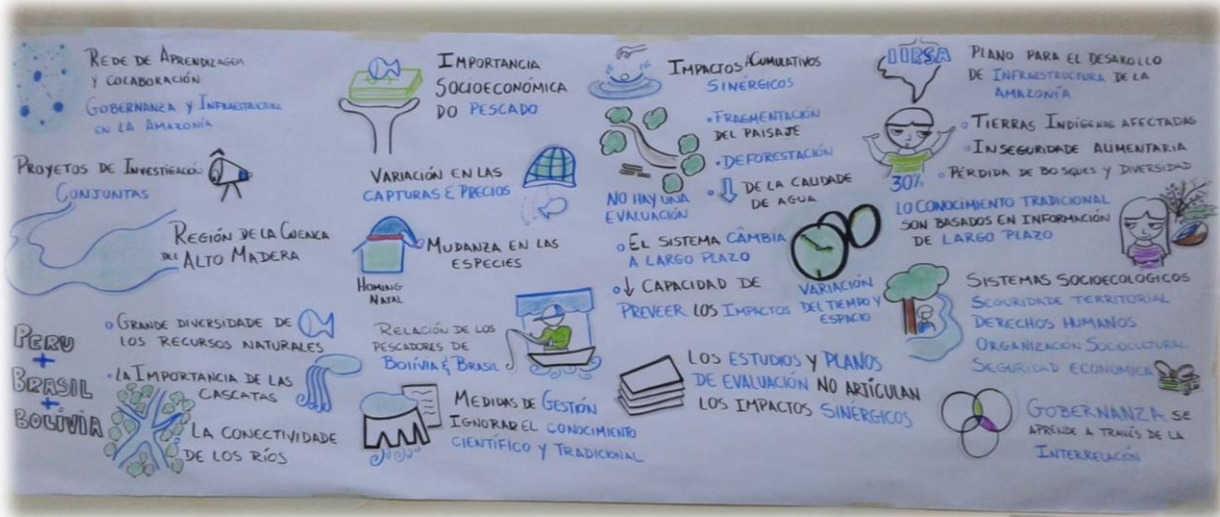 REDE DE APRENDIZAGEM
Y COLABORACIÓN
GOBERNANZA Y INFRAESTRUCTURA
EN LA AMAZONÍA
PROYETOS DE INVESTIGACIÓN
CONJUNTAS
REGIÓN DE LA CUENCA
DEL ALTO MADERA
PERU
+
BRASIL
+
BOLÍVIA
GRANDE DIVERSIDADE DE
LOS RECURSOS NATURALES
LA IMPORTANCIA DE LAS
CASCATAS
LA CONECTIVIDADE
DE LOS RÍOS
IMPORTANCIA
SOCIOECONÓMICA
DO PESCADO
VARIACIÓN EN LAS
CAPTURAS E PRECIOS
MUDANZA EN LAS
ESPECIES
HOMING
NATAL
RELACIÓN DE LOS
PESCADORES DE
BOLÍVIA & BRASIL
MEDIDAS DE GESTIÓN
IGNORAR EL CONOCIMIENTO
CIENTÍFICO Y TRADICIONAL
IMPACTOS ACUMULATIVOS
SINÉRGICOS
FRAGMENTACIÓN
DEL PAISAJE
DEFORESTACIÓN
DE LA CALIDADE
DE AGUA
NO HAY UNA
EVALUACIÓN
EL SISTEMA CÂMBIA
A LARGO PLAZO
↓ CAPACIDAD DE
PREVEER LOS IMPACTOS
VARIACIÓN
DEL TIEMPO Y
ESPACIO
LOS ESTUDIOS Y PLANOS
DE EVALUACIÓN NO ARTÍCULAN
LOS IMPACTOS SINÉRGICOS
IIRSA
PLANO PARA EL DESAROLLO
DE INFRAESTRUCTURA DE LA
AMAZONÍA
TIERRAS INDÍGENAS AFECTADAS
INSEGURIDADE ALIMENTARIA
PÉRDIDA DE BOSQUES Y DIVERSIDAD
30%
LO CONOCIMIENTO TRADICIONAL
SON BASADOS EN INFORMACIÓN
DE LARGO PLAZO
SISTEMAS SOCIOECOLÓGICOS
SEGURIDADE TERRITORIAL
DERECHOS HUMANOS
ORGANIZACIÓN SOCOCULTURAL
SEGURIDAD ECONOMICA
GOBERNANZA SE
APRENDE A TRAVÉS DE LA
INTERRELACIÓN